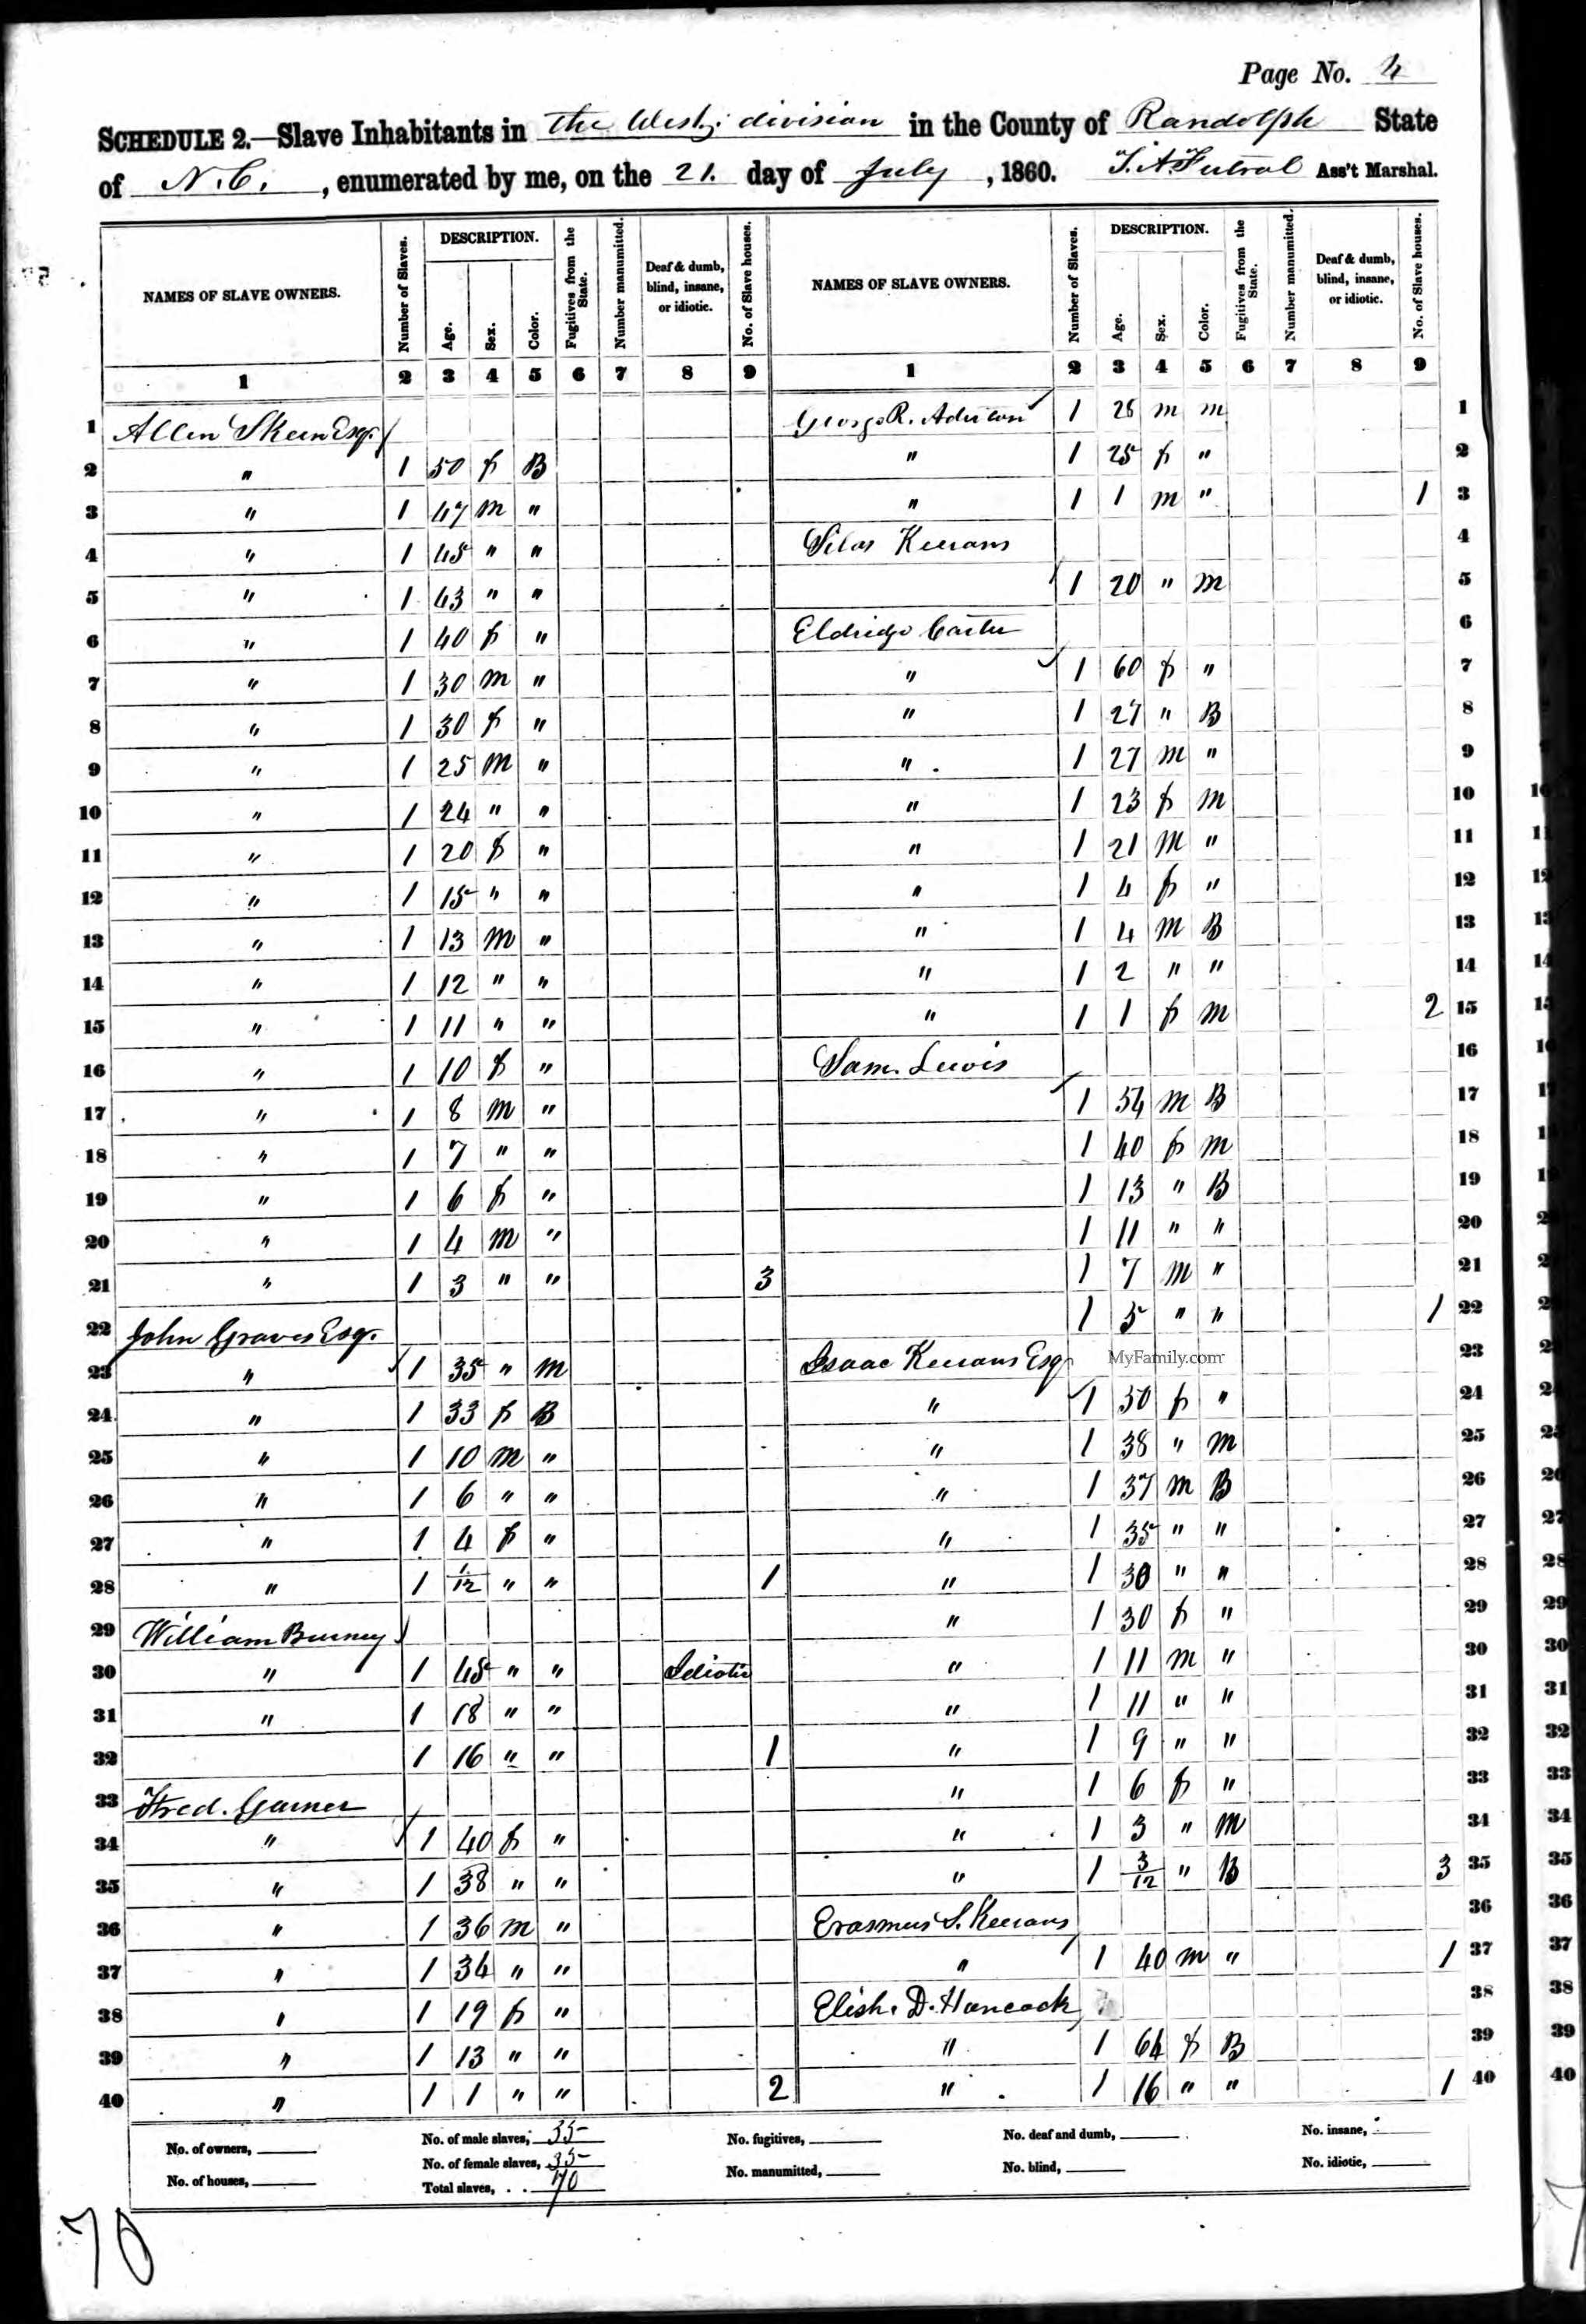 Page No. 4
SCHEDULE 2.—Slave Inhabitants in the West. division in the County of Randolph State
of N.C., enumerated by me, on the 21. day of July, 1860. Ass't Marshal.
NAMES OF SLAVE OWNERS. Number of Slaves. DESCRIPTION. Age. Sex. Color. Fugitives from the State. Number manumitted. Deaf & dumb, blind, insane, or idiotic. No. of Slave houses. NAMES OF SLAVE OWNERS. Number of Slaves. DESCRIPTION. Age. Sex. Color. Fugitives from the State. Number manumitted. Deaf & dumb, blind, insane, or idiotic. No. of Slave houses.
1 2 3 4 5 6 7 8 9 1 2 3 4 5 6 7 8 9
1 Allen Skeen Esq. George R. 1 28 m m 1
2 " 1 50 f B " 1 25 f " 2
3 " 1 47 m " " 1 1 m " 1 3
4 " 1 45 " " Silas Keerans 4
5 " 1 43 " " 1 20 " m 5
6 " 1 40 f " Eldridge Carter 6
7 " 1 30 m " " 1 60 f " 7
8 " 1 30 f " " 1 27 " B 8
9 " 1 25 m " " 1 27 m " 9
10 " 1 24 " " " 1 23 f m 10
11 " 1 20 f " " 1 21 m " 11
12 " 1 15 " " " 1 4 f " 12
13 " 1 13 m " " 1 4 m B 13
14 " 1 12 " " " 1 2 " " 14
15 " 1 11 " " " 1 1 f m 2 15
16 " 1 10 f " Sam. Lewis 16
17 " 1 8 m " 1 54 m B 17
18 " 1 7 " " 1 40 f m 18
19 " 1 6 f " 1 13 " B 19
20 " 1 4 m " 1 11 " " 20
21 " 1 3 " " 3 1 7 m " 21
22 John Graves Esq. 1 5 " " 1 22
23 " 1 35 " m Isaac Keerans Esq MyFamily.com 23
24 " 1 33 f B " 1 50 f " 24
25 " 1 10 m " " 1 38 " m 25
26 " 1 6 " " " 1 37 m B 26
27 " 1 4 f " " 1 35 " " 27
28 " 1 1/12 " " 1 " 1 30 " " 28
29 William Burney " 1 30 f " 29
30 " 1 45 " " Idiotic " 1 11 m " 30
31 " 1 18 " " " 1 11 " " 31
32 1 16 " " 1 " 1 9 " " 32
33 Fred. Garner " 1 6 f " 33
34 " 1 40 f " " 1 3 " m 34
35 " 1 38 " " " 1 3/12 " B 3 35
36 " 1 36 m " Erasmus S. Keerans 36
37 " 1 34 " " " 1 40 m " 1 37
38 " 1 19 f " Elisha D. Hancock 38
39 " 1 13 " " " 1 64 f B 39
40 " 1 1 " " 2 " 1 16 " " 1 40
No. of owners, No. of male slaves, 35 No. fugitives, No. deaf and dumb, No. insane,
No. of houses, No. of female slaves, 35 No. manumitted, No. blind, No. idiotic,
Total slaves, . . 70
70